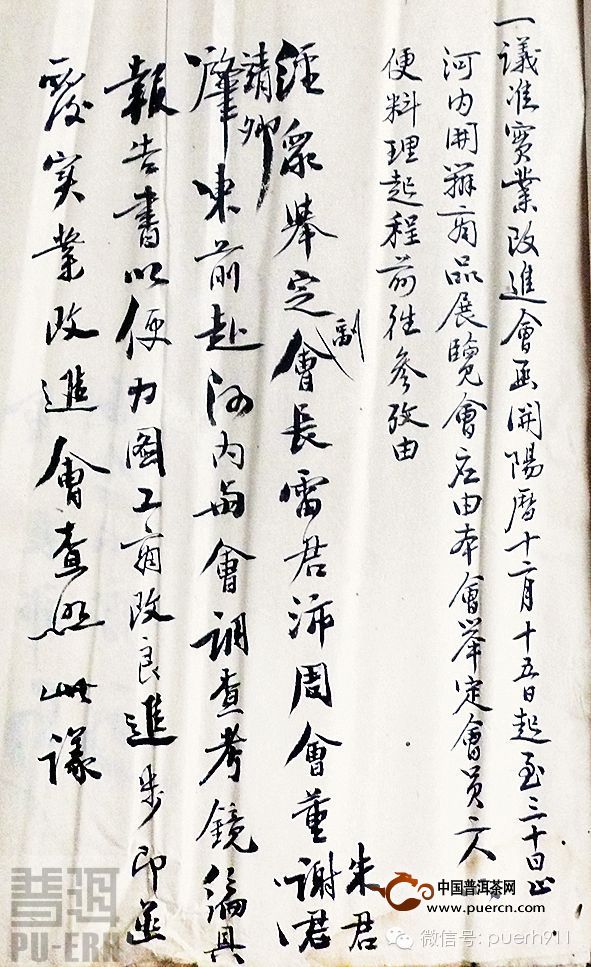 一議准實業改進會函開陽曆十二月十五日起至三十日止
河内開辦商品展覽會应由本會举定會員二人
便料理起程前往參攷由
經眾舉定副會長雷君沛周會董朱君謝君
靖卿肇東前赴河内與會調查考鏡编具
報告書以便力圖工商改良進步即函
覆实業改進會查照此議
普洱
PU-ERH
中国普洱茶网
www.puercn.com
微信号: puerh911